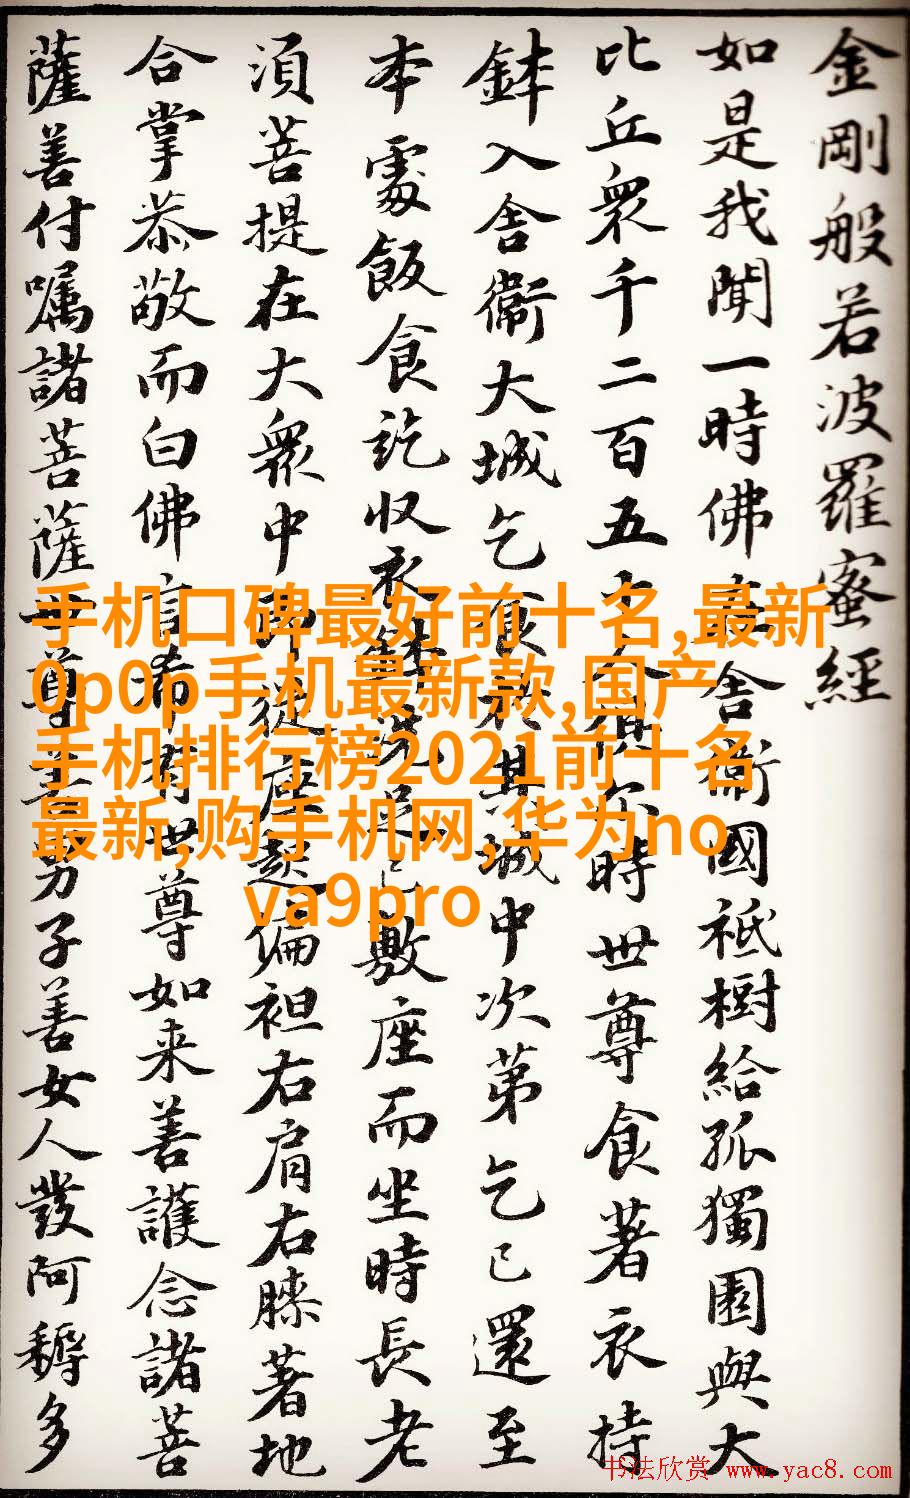 金剛般若波羅蜜經
如是我聞一時佛舍衛國祇樹給孤獨園與大
比丘衆千二百五十人俱尔時世尊食著衣持
鉢入舍衛大城乞食於其城中次第乞已還至
本處飯食訖收衣鉢洗足已敷座而坐時長老
須菩提在大衆中即從座起偏袒右肩右膝著地
合掌恭敬而白佛言希有世尊如来善護念諸菩
薩善付嘱諸菩薩世尊善男子善女人發阿耨多
手机口碑最好前十名,最新
0p0p手机最新款,国产
手机排行榜2021前十名
最新,购手机网,华为no
va9pro
书法欣赏 www.yac8.com